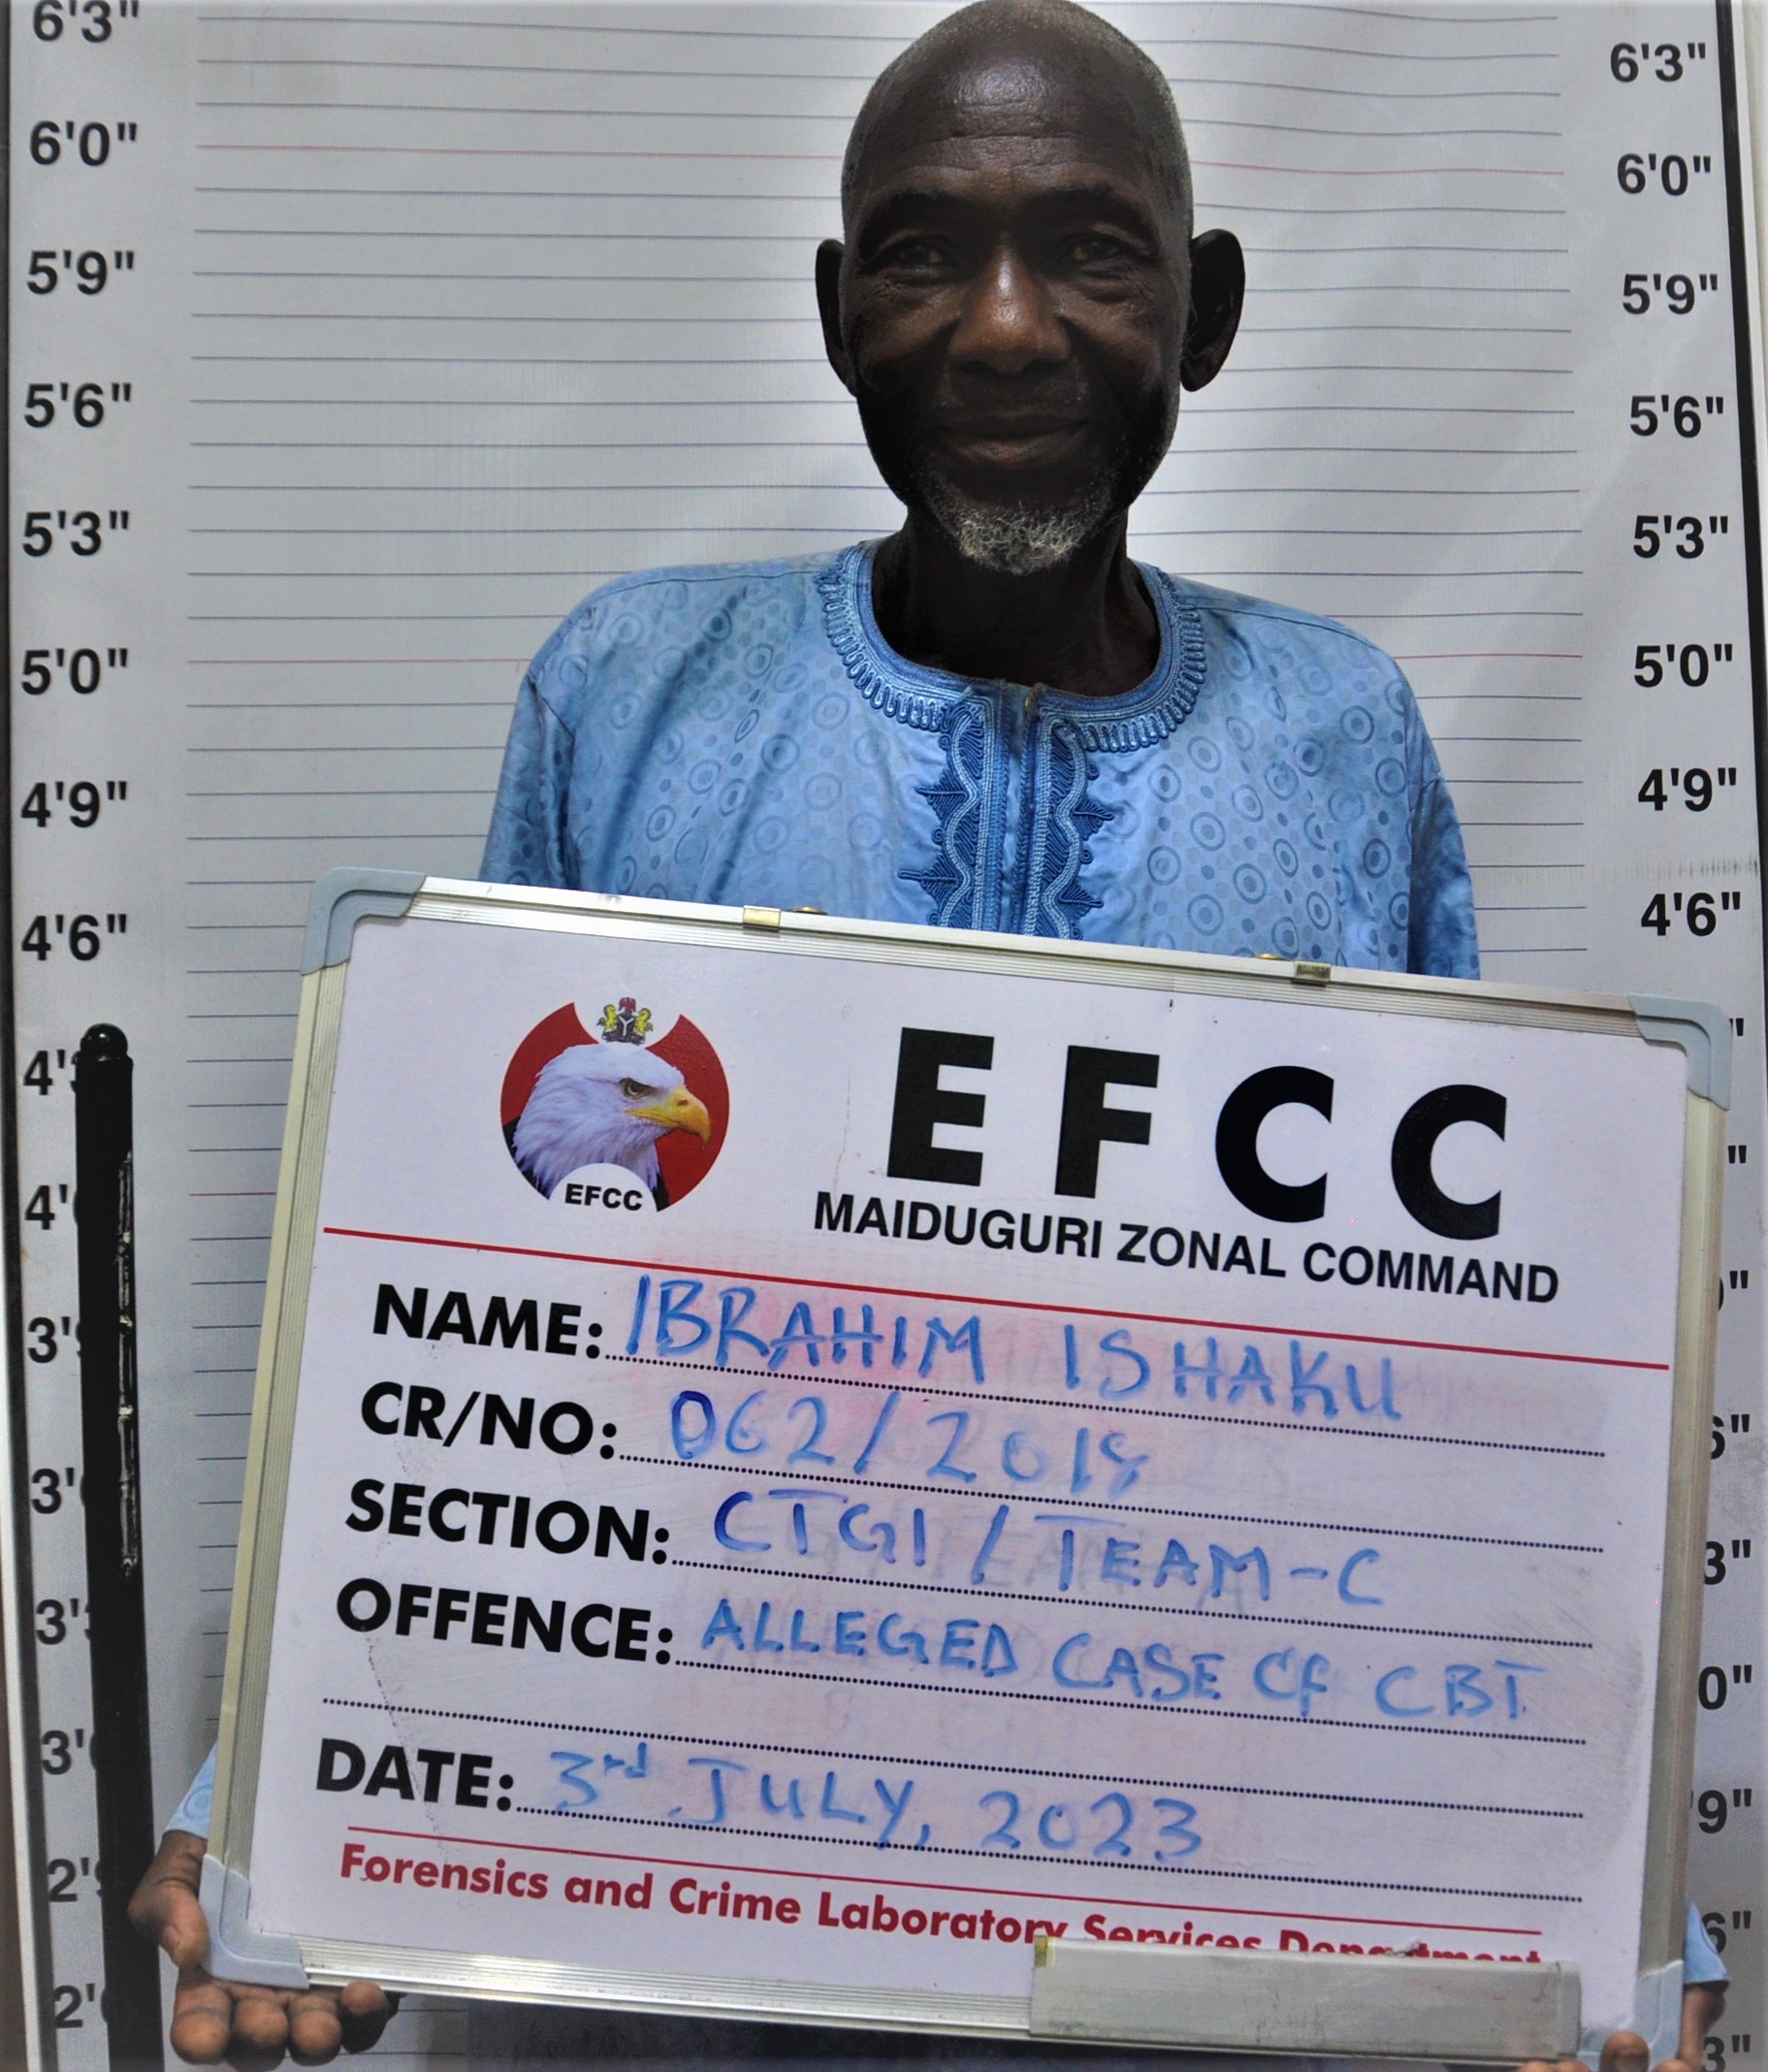 6'3" 6'3"
6'0" 6'0"
5'9" 5'9"
5'6" 5'6"
5'3" 5'3"
5'0" 5'0"
4'9" 4'9"
4'6" 4'6"
EFCC
EFCC
MAIDUGURI ZONAL COMMAND
NAME: IBRAHIM ISHAKU
CR/NO: 062/2018
SECTION: CTGI / TEAM-C
OFFENCE: ALLEGED CASE Of CBT
DATE: 3rd JULY, 2023
Forensics and Crime Laboratory Services Department